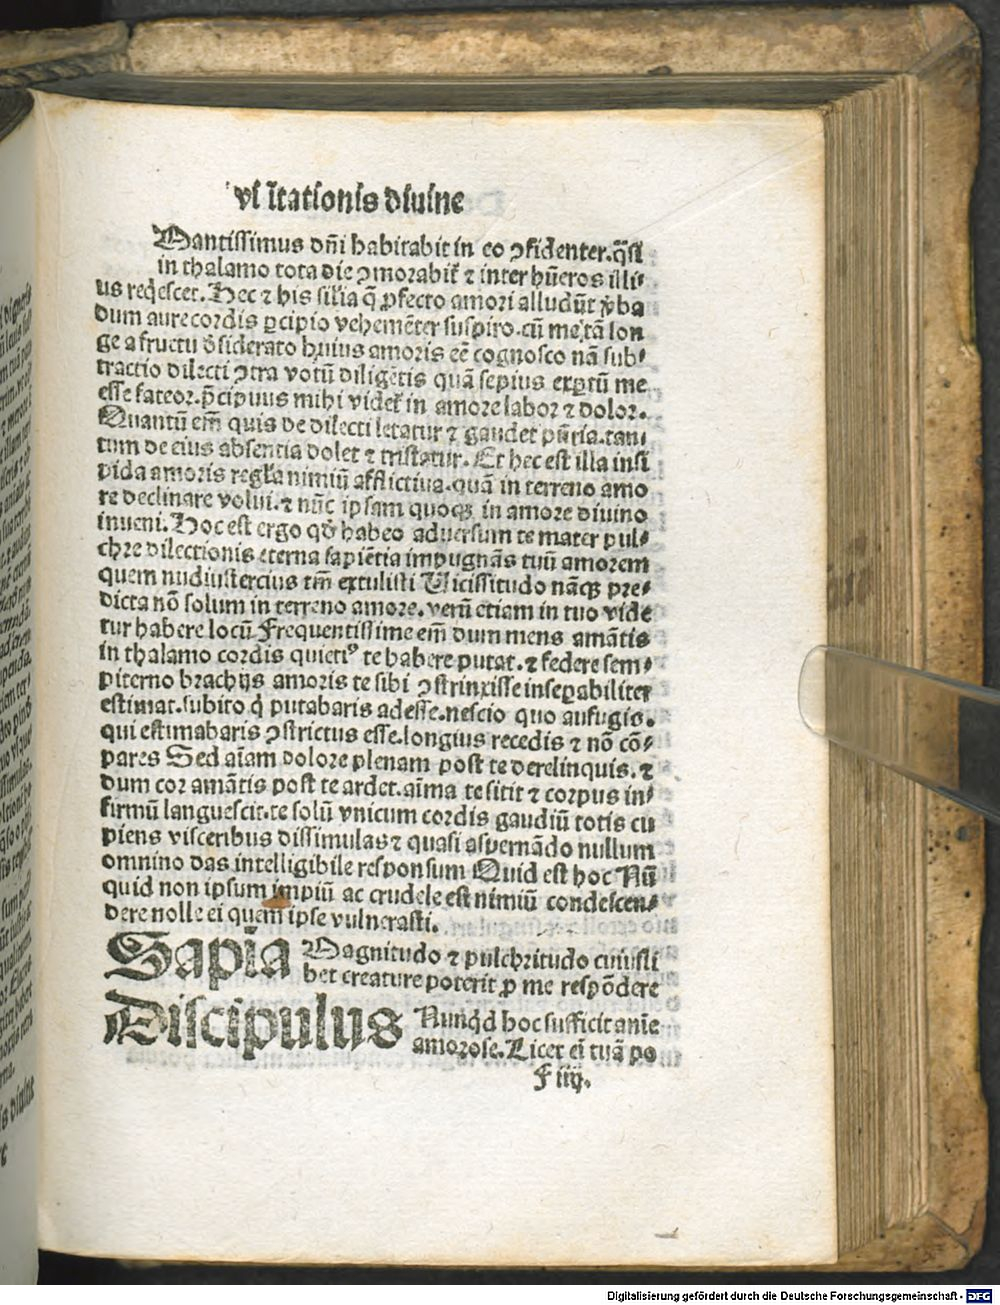 vi ſitationis diuine
Amantiſſimus dn̄i habitabit in eo ꝯfidenter. q̄ſi
in thalamo tota die ꝯmorabit̄ ⁊ inter hūeros illi⸗
us reqͥeſcet. Hec ⁊ his ſilia q̄ ꝓfecto amori alludūt v̄ba
dum aure cordis ꝑcipio vehemēter ſuſpiro. cū me tā lon
ge a fructu deſiderato huius amoris eē cognoſco nā ſub⸗
tractio dilecti ꝯtra votū diligētis quā ſepius exꝑtū me
eſſe fateor. p̄cipuus mihi videt̄ in amore labor ⁊ dolor.
Quantū em̄ quis de dilecti letatur ⁊ gaudet pn̄tia. tan⸗
tum de eius abſentia dolet ⁊ triſtatur. Et hec eſt illa inſi
pida amoris regl̄a nimiū afflictiua. quā in terreno amo
re declinare volui. ⁊ nūc ipſam quoqꝫ in amore diuino
inueni. Hoc eſt ergo qd̄ habeo aduerſum te mater pul⸗
chre dilectionis eterna ſapiētia impugnās tuū amorem
quem nudiuſtercius tm̄ extuliſti Viciſſitudo nāqꝫ pre⸗
dicta nō ſolum in terreno amore. verū etiam in tuo vide
tur habere locū Frequentiſſime em̄ dum mens amātis
in thalamo cordis quietiꝰ te habere putat. ⁊ federe ſem⸗
piterno brachijs amoris te ſibi ꝯſtrinxiſſe inſeꝑabiliter
eſtimat. ſubito qͥ putabaris adeſſe. neſcio quo aufugis.
qui eſtimabaris ꝯſtrictus eſſe. longius recedis ⁊ nō cō⸗
pares Sed aīam dolore plenam poſt te derelinquis. ⁊
dum cor amātis poſt te ardet. aīma te ſitit ⁊ corpus in⸗
firmū langueſcit. te ſolū vnicum cordis gaudiū totis cu
piens viſceribus diſſimulas ⁊ quaſi aſpernādo nullum
omnino das intelligibile reſponſum Quid eſt hoc Nū
quid non ipſum impiū ac crudele eſt nimiū condeſcen⸗
dere nolle ei quem ipſe vulneraſti.
Sapia Magnitudo ⁊ pulchritudo cuiuſli
bet creature poterit ꝓ me reſpōdere
Diſcipulus Nunqͥd hoc ſufficit anīe
amoroſe. Licet eī tuā po
F iiij.
Digitalisierung gefördert durch die Deutsche Forschungsgemeinschaft - DFG